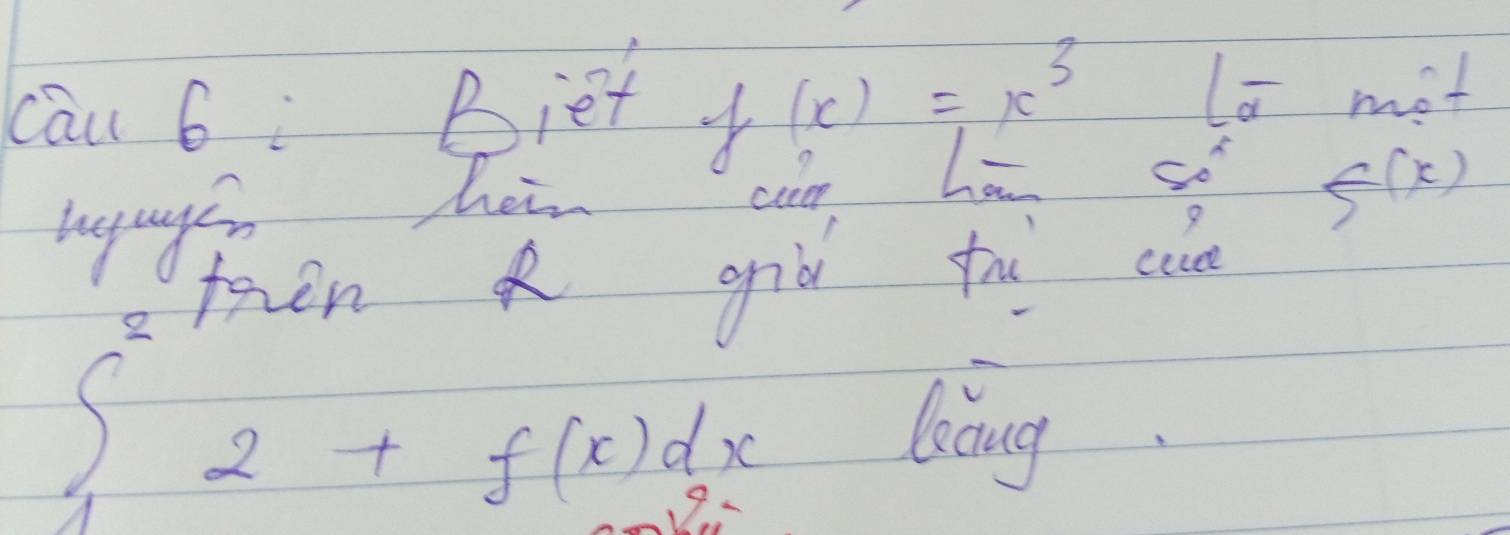 Câu 6 : Biết f(x) = x³ là một
nguyên hàm của hàm số f(x)
trên R giá trị của
∫₁² 2 + f(x)dx bằng .